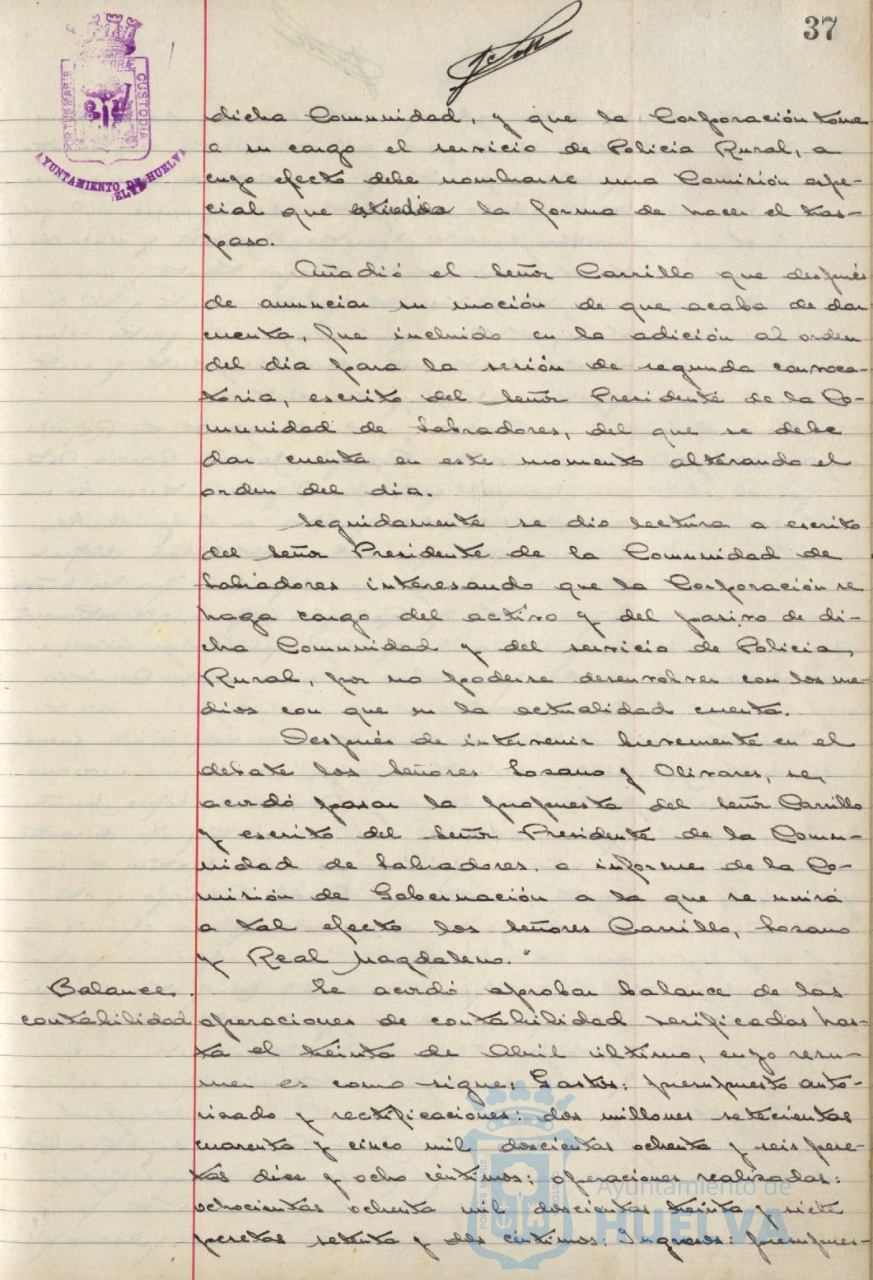 37
PORTUS MARIS ET TERRÆ CUSTODIA
AYUNTAMIENTO DE HUELVA
dicha Comunidad, y que la Corporación tome
a su cargo el servicio de Policia Rural, a
cuyo efecto debe nombrarse una Comisión espe-
cial que estudie la forma de hacer el tras-
paso.
Añadió el Señor Carrillo que después
de anunciar su moción de que acaba de dar
cuenta, fue incluido en la adición al orden
del dia para la sesión de segunda convoca-
toria, escrito del Señor Presidente de la Co-
munidad de Labradores, del que se debe
dar cuenta en este momento alterando el
orden del dia.
Seguidamente se dio lectura a escrito
del Señor Presidente de la Comunidad de
Labradores interesando que la Corporación se
haga cargo del activo y del pasivo de di-
cha Comunidad y del servicio de Policia
Rural, por no poderse desenvolver con los me-
dios con que en la actualidad cuenta.
Después de intervenir brevemente en el
debate los Señores Lozano y Olivares, se
acordó pasar la propuesta del Señor Carrillo
y escrito del Señor Presidente de la Comu-
nidad de Labradores, a informe de la Co-
misión de Gobernación a la que se unirá
a tal efecto los Señores Carrillo, Lozano
y Real Magdaleno."
Balance
contabilidad
Se acordó aprobar balance de las
operaciones de contabilidad verificadas has-
ta el treinta de Abril último, cuyo resu-
men es como sigue: Gastos: presupuesto auto-
rizado y rectificaciones: dos millones setecientas
cuarenta y cinco mil doscientas ochenta y seis pese-
tas diez y ocho céntimos; operaciones realizadas:
ochocientas ochenta mil doscientas treinta y siete
pesetas setenta y dos céntimos; Ingresos: presupues-
Ayuntamiento de
HUELVA